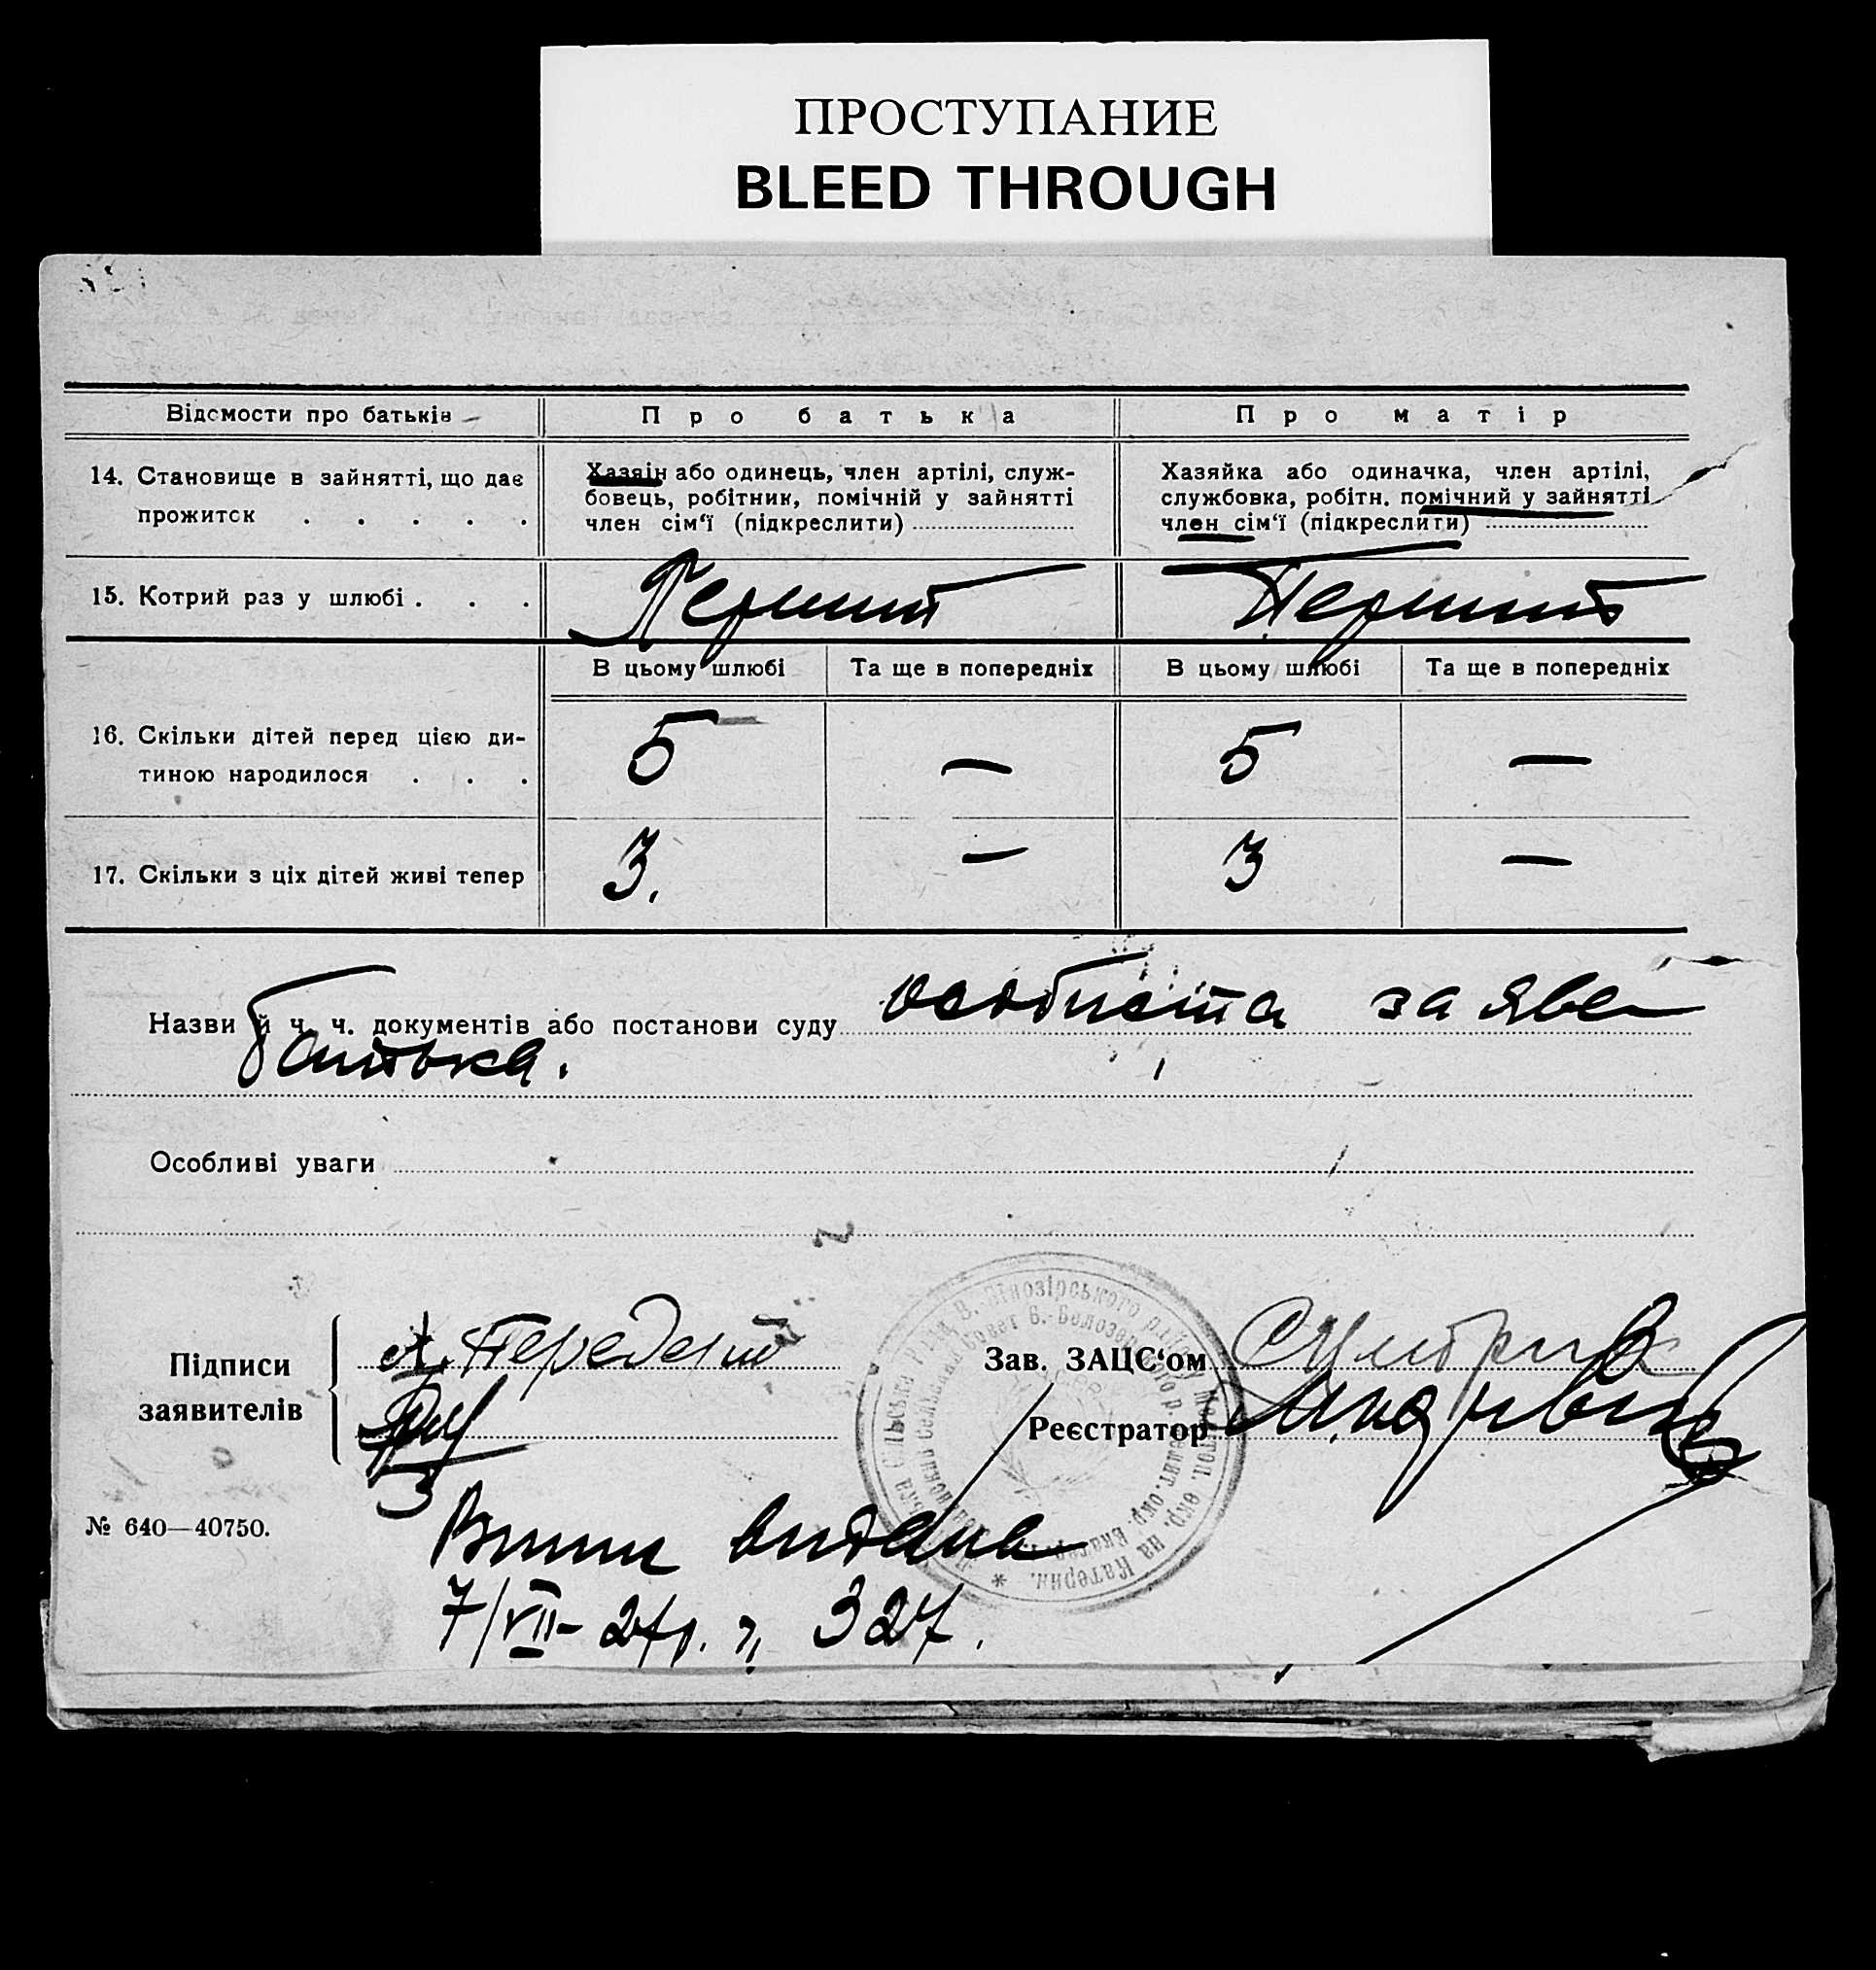 ПРОСТУПАНИЕ
BLEED THROUGH
Відомости про батьків
Про батька
Про матір
14. Становище в зайнятті, що дає
прожиток . . . . .
Хазяін або одинець, член артілі, служ-
бовець, робітник, помічній у зайнятті
член сім‘ї (підкреслити)
Хазяйка або одиначка, член артілі,
службовка, робітн. помічний у зайнятті
член сім‘ї (підкреслити)
15. Котрий раз у шлюбі . . .
Перший
Перший
В цьому шлюбі
Та ще в попередніх
В цьому шлюбі
Та ще в попередніх
16. Скільки дітей перед цією ди-
тиною народилося . . .
5
—
5
—
17. Скільки з ціх дітей живі тепер
3.
—
3
—
Назви й ч. ч. документів або постанови суду особиста заява
батька.
Особливі уваги
Підписи
заявителів
Зав. ЗАЦС‘ом
Реєстратор
№ 640—40750.
видана
7/VII-27р. 327.